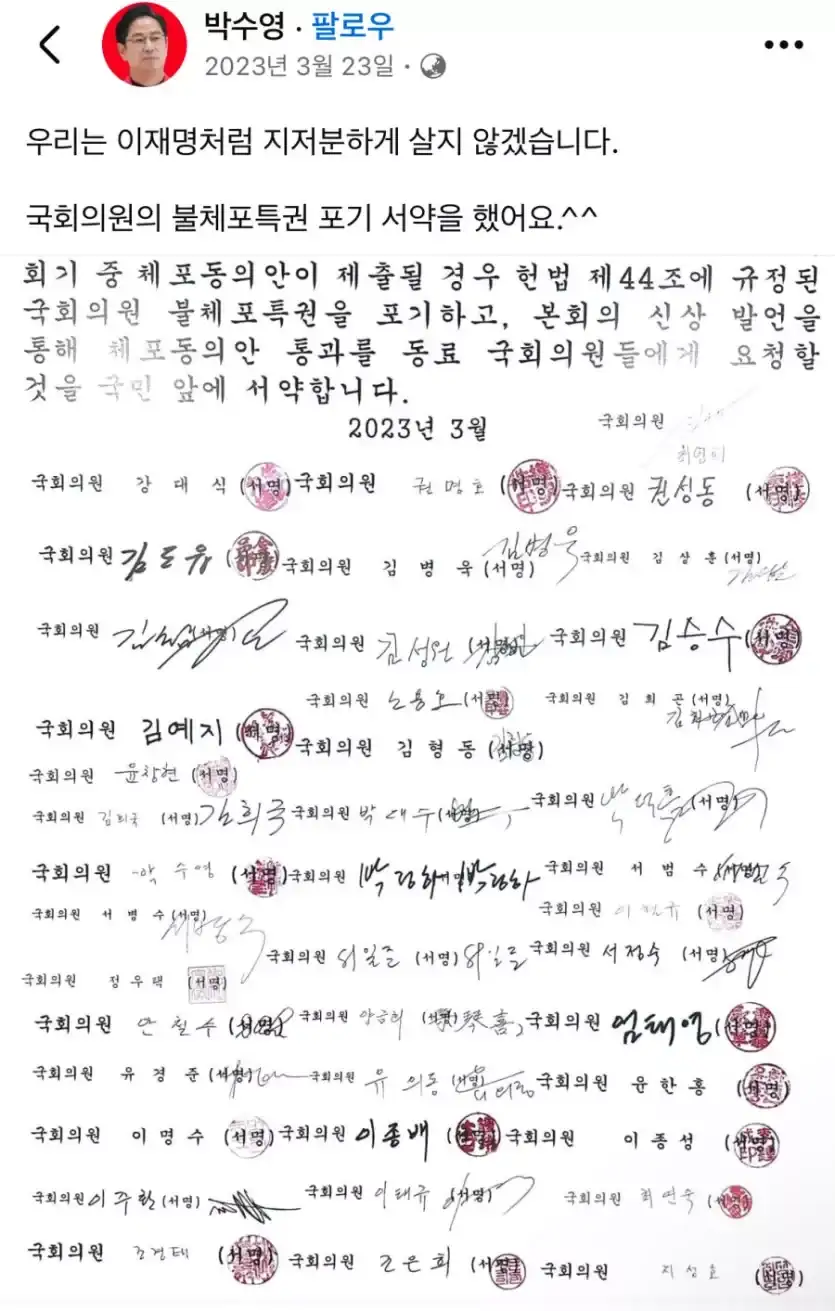 박수영 · 팔로우
2023년 3월 23일 ·
우리는 이재명처럼 지저분하게 살지 않겠습니다.
국회의원의 불체포특권 포기 서약을 했어요.^^
회기 중 체포동의안이 제출될 경우 헌법 제44조에 규정된
국회의원 불체포특권을 포기하고, 본회의 신상 발언을
통해 체포동의안 통과를 동료 국회의원들에게 요청할
것을 국민 앞에 서약합니다.
2023년 3월
국회의원
국회의원 강대식 (서명) 국회의원 권명호 (서명) 국회의원 권성동 (서명)
국회의원 김도읍 (서명) 국회의원 김병욱 (서명) 김병욱 국회의원 김상훈 (서명)
국회의원 (서명) 국회의원 김성원 (서명) 국회의원 김승수 (서명)
국회의원 노용호 (서명) 국회의원 김희곤 (서명)
국회의원 김예지 (서명) 국회의원 김형동 (서명)
국회의원 윤창현 (서명)
국회의원 김희국 (서명) 김희국 국회의원 박대수 (서명) 국회의원 (서명)
국회의원 박수영 (서명) 국회의원 박정하 서명 박정하 국회의원 서범수 (서명)
국회의원 서병수 (서명) 국회의원 (서명)
국회의원 서일준 (서명) 서일준 국회의원 서정숙 (서명)
국회의원 정우택 (서명)
국회의원 안철수 (서명) 국회의원 양금희 (서명) 국회의원 엄태영 (서명)
국회의원 유경준 (서명) 국회의원 유의동 (서명) 국회의원 윤한홍 (서명)
국회의원 이명수 (서명) 국회의원 이종배 (서명) 국회의원 이종성 (서명)
국회의원 이주환 (서명) 국회의원 이태규 (서명) 국회의원 최연숙 (서명)
국회의원 조경태 (서명) 국회의원 조은희 (서명) 국회의원 지성호 (서명)